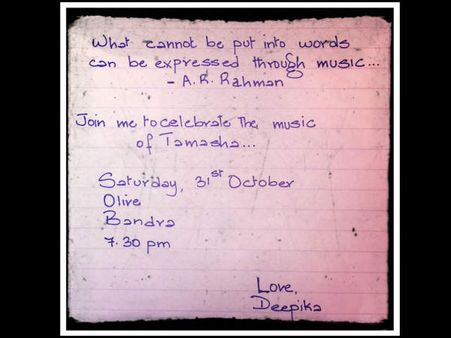 What cannot be put into words
can be expressed through music...
- A.R. Rahman
Join me to celebrate the music
of Tamasha...
Saturday, 31st October
Olive
Bandra
7.30 pm
Love,
Deepika